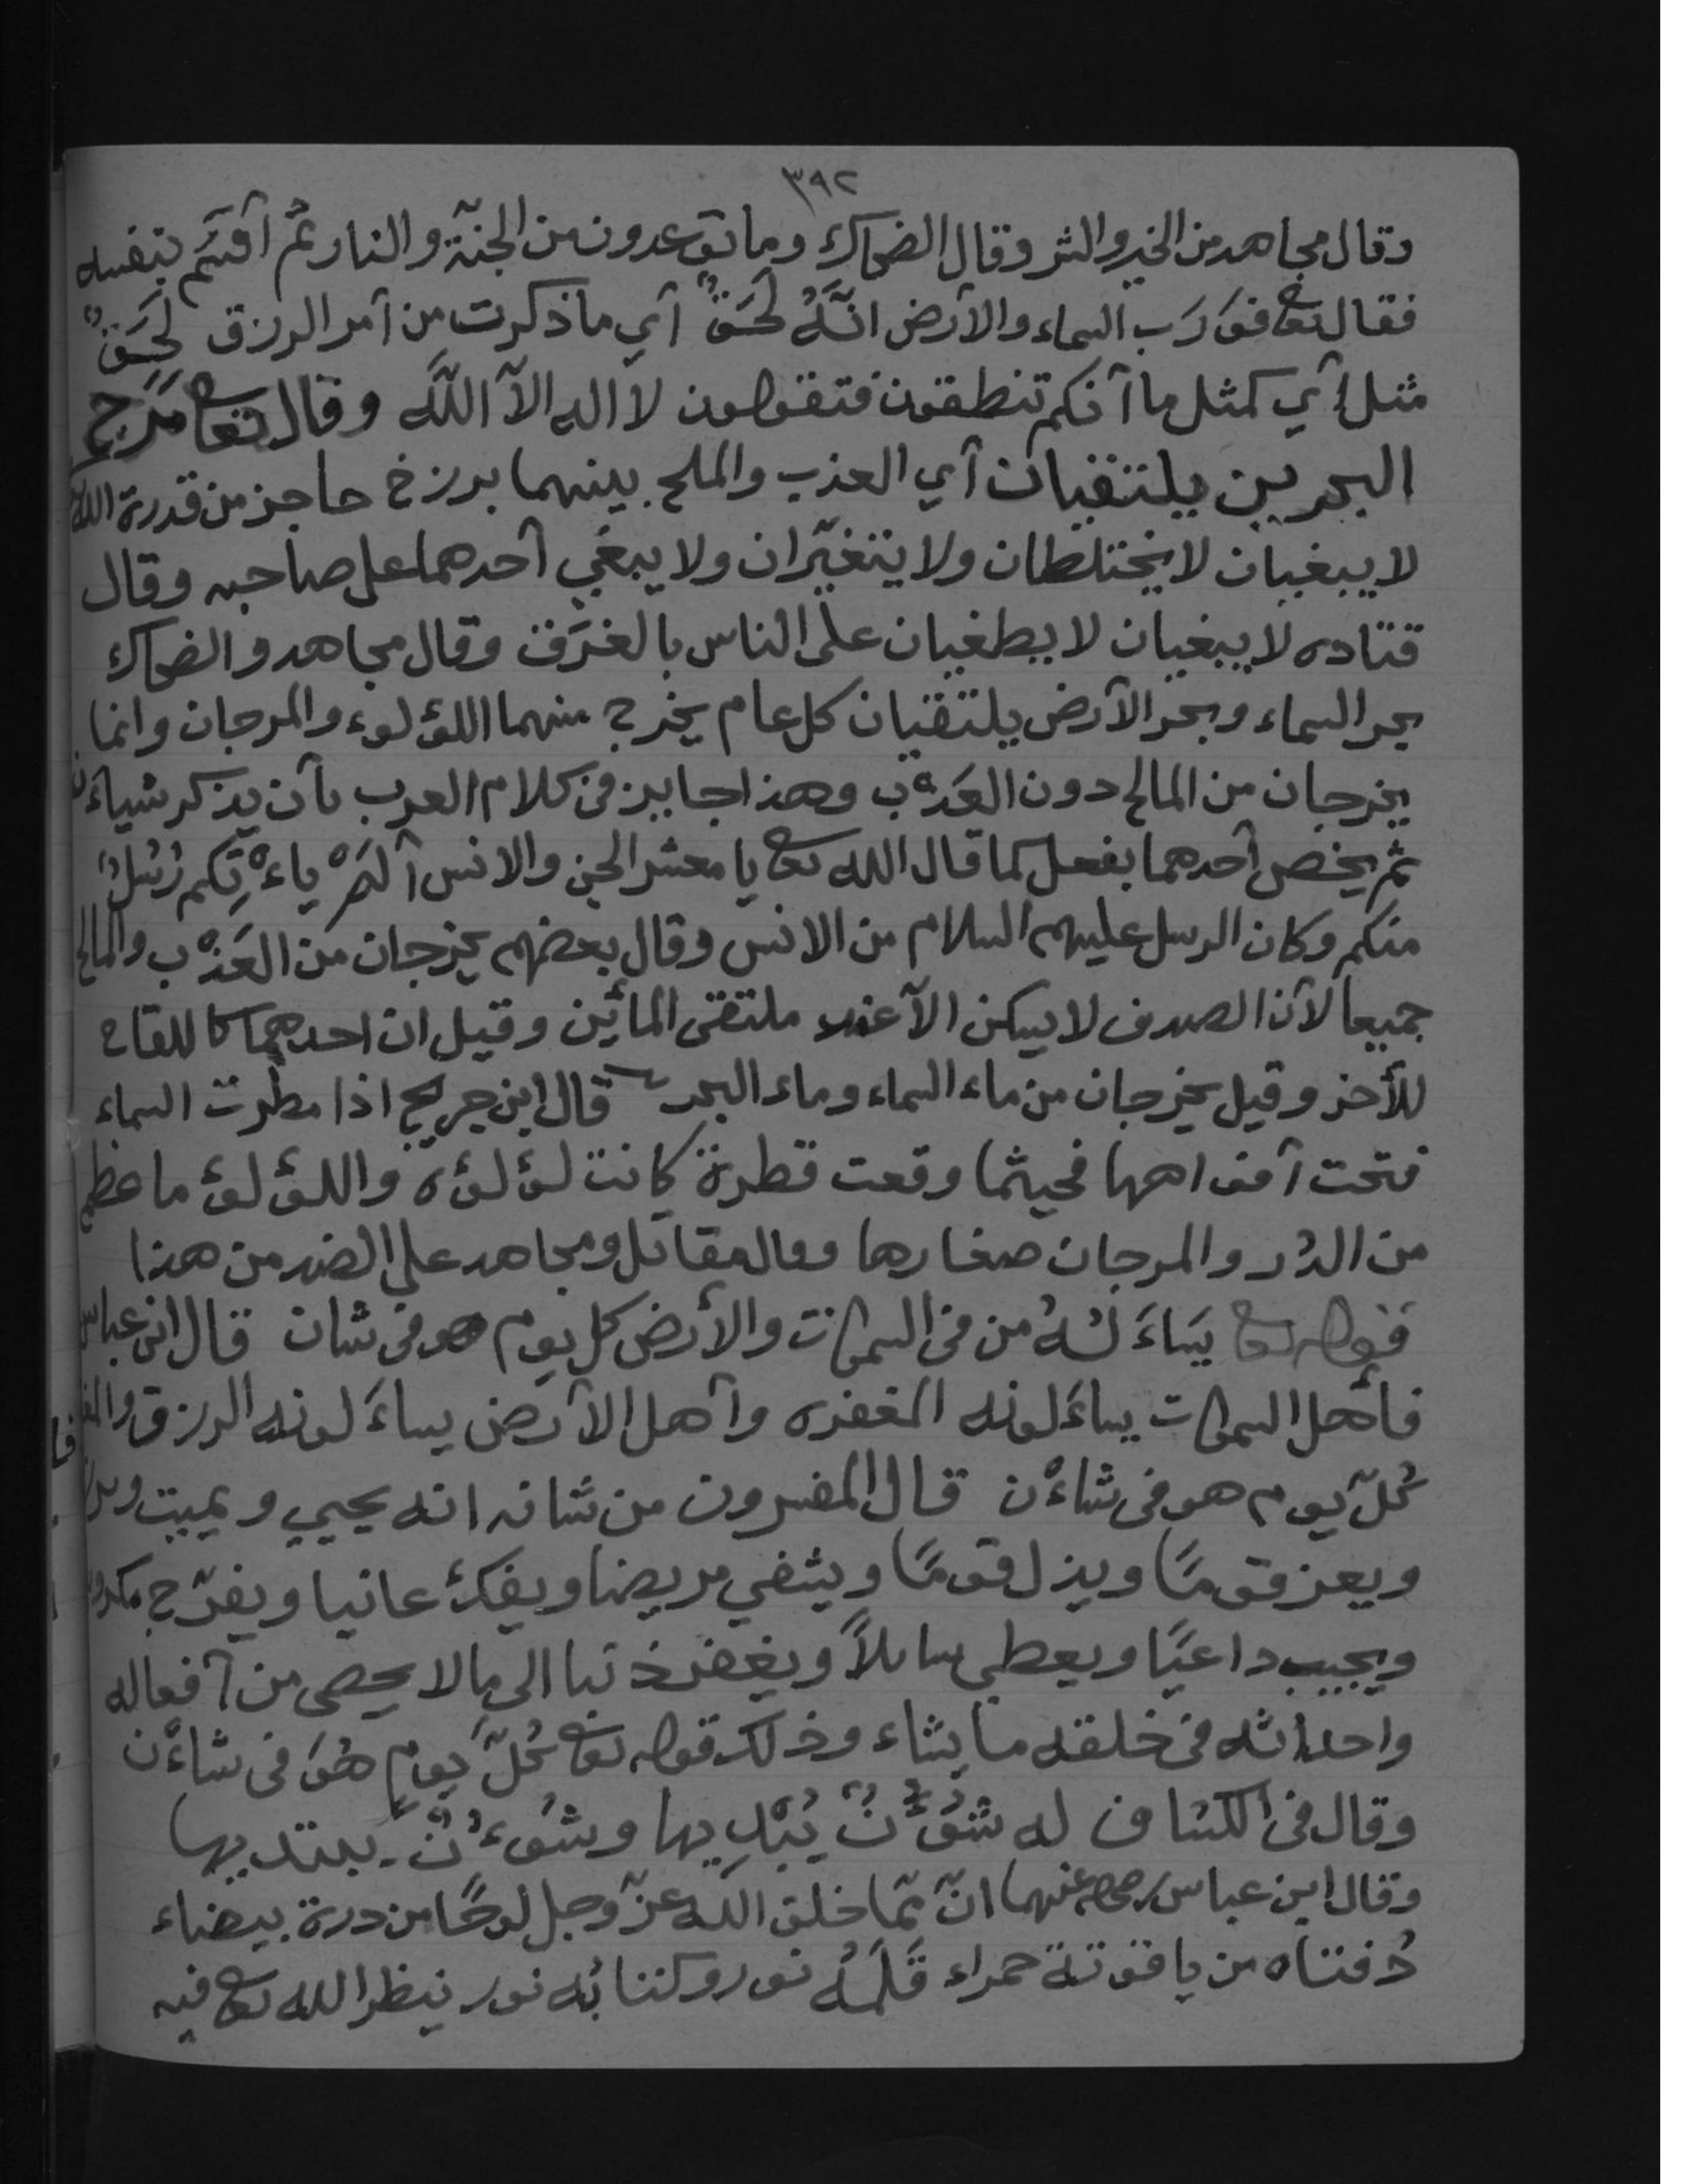 ٣٩٢
وقال مجاهد من الخير والشر وقال الضحاك وما توعدون من الجنّة والنار ثمّ آقسَم بنفسه
فقال تعا فَوَ رَب السماء والآرض انَّهُ لَحَقٌ آي ما ذكرت من آمر الرزق لَحَقٌ
مثل آي كمثل ما آنكم تنطقون فتقولون لا اله الآ اللّه وقال تعا مَرَج
البحرين يلتقيان آي العذب والملح بينهما برزخ حاجز من قدرة الله
لا يبغيان لا يختلطان ولا يتغيّران ولا يبغي آحدهما على صاحبه وقال
قتاده لا يبغيان لا يطغيان على الناس بالغَرَق وقال مجاهد والضحاك
بحر السماء وبحر الآرض يلتقيان كل عام يخرج منهما اللؤلوء والمرجان وانما
يخرجان من المالح دون العَذْب وهذا جايز في كلام العرب بآن يذكر شياءن
ثم يخص آحدهما بفعل كما قال الله تعا يا معشر الجن والانس آلَمْ ياءْتِكم رُسُلٌ
منكم وكان الرسل عليهم السلام من الانس وقال بعضهم يخرجان من العَذْب والمالح
جميعا لآن الصدف لا يسكن الآ عند ملتقى المائين وقيل ان احدهما كاللقاح
للأخر وقيل يخرجان من ماء السماء وماء البحر قال ابن جريج اذا مطرت السماء
فتحت آفواهها فحيثما وقعت قطرة كانت لؤلؤه واللؤلؤ ما عظم
من الدُر والمرجان صغارها وقال مقاتل ومجاهد على الضد من هذا
قوله تعا يَساءَ لُهُ من في السموات والأرض كل يوم هو في شان قال ابن عباس
فأهل السموات يساءَلونه المغفره وآهل الآرض يساءَلونه الرزق
كُلّ يوم هو في شاءْن قال المفسرون من شانه انه يحيي ويميت
ويعز قومًا ويذل قومًا ويشفي مريضا ويفكُ عانيا ويفرّج
ويجيب داعيًا ويعطي سايلاً ويغفر ذنبا الى ما لا يحصى من آفعاله
واحداثه في خلقه ما يشاء وذلك قوله تعا كُلّ يَومٍ هُوَ في شاءْن
وقال في الكشاف له شُؤُنٌ يُبْدِيها وشُوءُنٌ يبتديها
وقال ابن عباس رضي الله عنهما انّ ممّا خلق اللّه عزّ وجل لوحًا من درة بيضاء
دُفتاه من ياقوتة حمراء قَلَمُهُ نور وكتابُه نور ينظر الله تعا فيه